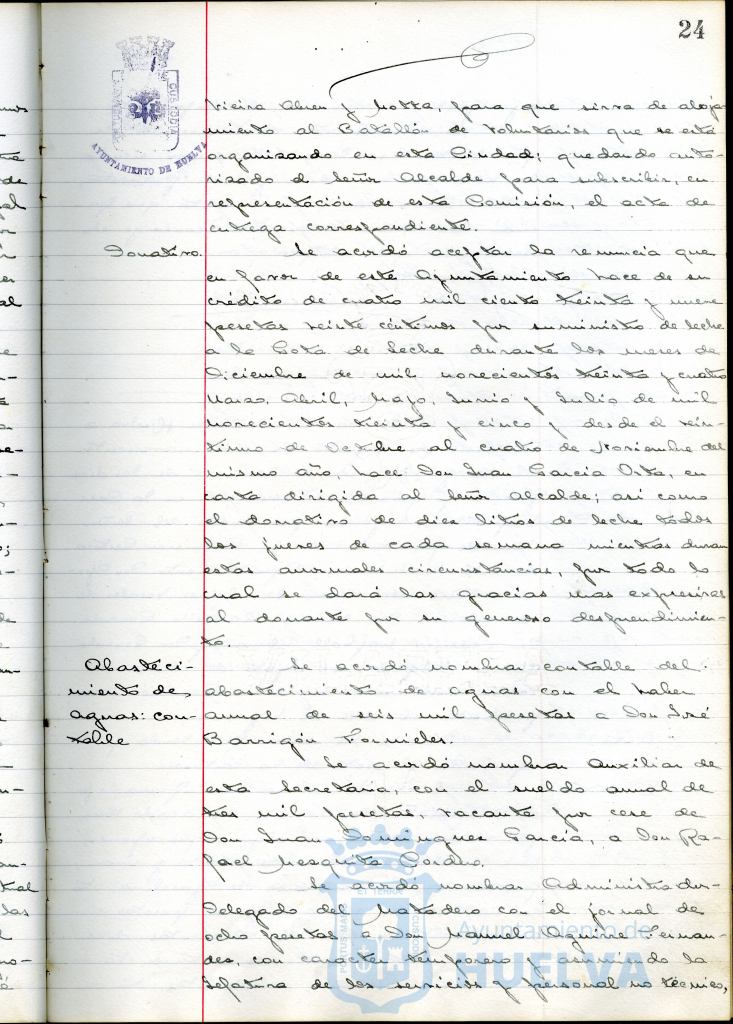 24
AYUNTAMIENTO DE HUELVA
Vieira Abreu y Motta, para que sirva de aloja-
miento al Batallón de Voluntarios que se está
organizando en esta Ciudad; quedando auto-
rizado el Señor Alcalde para subscribir, en
representación de esta Comisión, el acta de
entrega correspondiente.
Donativo.
Se acordó aceptar la renuncia que
en favor de este Ayuntamiento hace de su
crédito de cuatro mil ciento treinta y nueve
pesetas veinte céntimos por suministro de leche
a la Gota de Leche durante los meses de
Diciembre de mil novecientos treinta y cuatro
Marzo, Abril, Mayo, Junio y Julio de mil
novecientos treinta y cinco y desde el vein-
tiuno de Octubre al cuatro de Noviembre del
mismo año, hace Don Juan García Orta, en
carta dirigida al Señor Alcalde; así como
el donativo de diez litros de leche todos
los jueves de cada semana mientras duran
estas anormales circunstancias, por todo lo
cual se dará las gracias mas expresivas
al donante por su generoso desprendimien-
to.
Abasteci-
miento de
aguas: con-
table
Se acordó nombrar contable del
abastecimiento de aguas con el haber
anual de seis mil pesetas a Don José
Barrigón Fornieles.
Se acordó nombrar Auxiliar de
esta Secretaría, con el sueldo anual de
tres mil pesetas, vacante por cese de
Don Juan Domínguez García, a Don Ra-
fael Mesquita Cordero.
Se acordó nombrar Administrador-
Delegado del Matadero con el jornal de
ocho pesetas a Don Manuel Aguirre Fernan-
dez, con caracter temporero y asumiendo la
Jefatura de los servicios y personal no técnico,
Ayuntamiento de
HUELVA